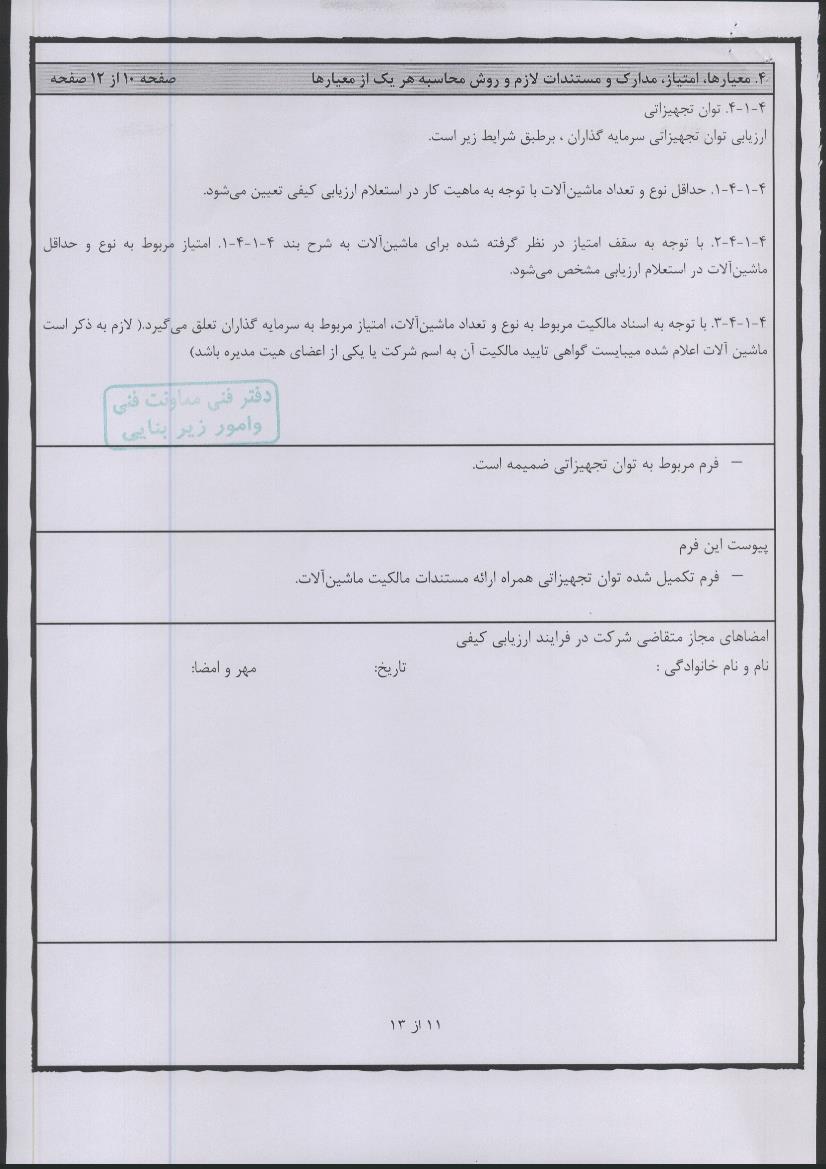 ۴. معیارها، امتیاز، مدارک و مستندات لازم و روش محاسبه هر یک از معیارها صفحه ۱۰ از ۱۲ صفحه
۴-۱-۴. توان تجهیزاتی
ارزیابی توان تجهیزاتی سرمایه گذاران ، برطبق شرایط زیر است.
۴-۱-۴-۱. حداقل نوع و تعداد ماشین‌آلات با توجه به ماهیت کار در استعلام ارزیابی کیفی تعیین می‌شود.
۴-۱-۴-۲. با توجه به سقف امتیاز در نظر گرفته شده برای ماشین‌آلات به شرح بند ۴-۱-۴-۱. امتیاز مربوط به نوع و حداقل
ماشین‌آلات در استعلام ارزیابی مشخص می‌شود.
۴-۱-۴-۳. با توجه به اسناد مالکیت مربوط به نوع و تعداد ماشین‌آلات، امتیاز مربوط به سرمایه گذاران تعلق می‌گیرد.( لازم به ذکر است
ماشین آلات اعلام شده میبایست گواهی تایید مالکیت آن به اسم شرکت یا یکی از اعضای هیت مدیره باشد)
دفتر فنی معاونت فنی
وامور زیر بنایی
– فرم مربوط به توان تجهیزاتی ضمیمه است.
پیوست این فرم
– فرم تکمیل شده توان تجهیزاتی همراه ارائه مستندات مالکیت ماشین‌آلات.
امضاهای مجاز متقاضی شرکت در فرایند ارزیابی کیفی
نام و نام خانوادگی : تاریخ: مهر و امضا:
۱۱ از ۱۳